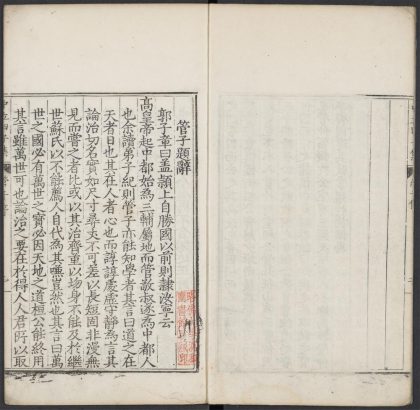 管子題辭
郭子章曰蓋潁上自勝國以前則隸汝寧云
高皇帝起中都始為三輔屬地而管敬叔遂為中都人
也余讀弟子紀則管子亦能知學者其言曰道之在
天者日也其在人者心也而諄諄處虛守靜為言其
論治切名實如尺寸尋丈不可差以長短固非漫無
見而嘗之者比或以其治齊重以場身不能及於繼
世蘇氏以不能薦人自代為其噗豈然也其言曰萬
世之國必有萬世之寶必因天地之道桓公能終用
其言雖萬世可也論治之要在於得人人君所以取